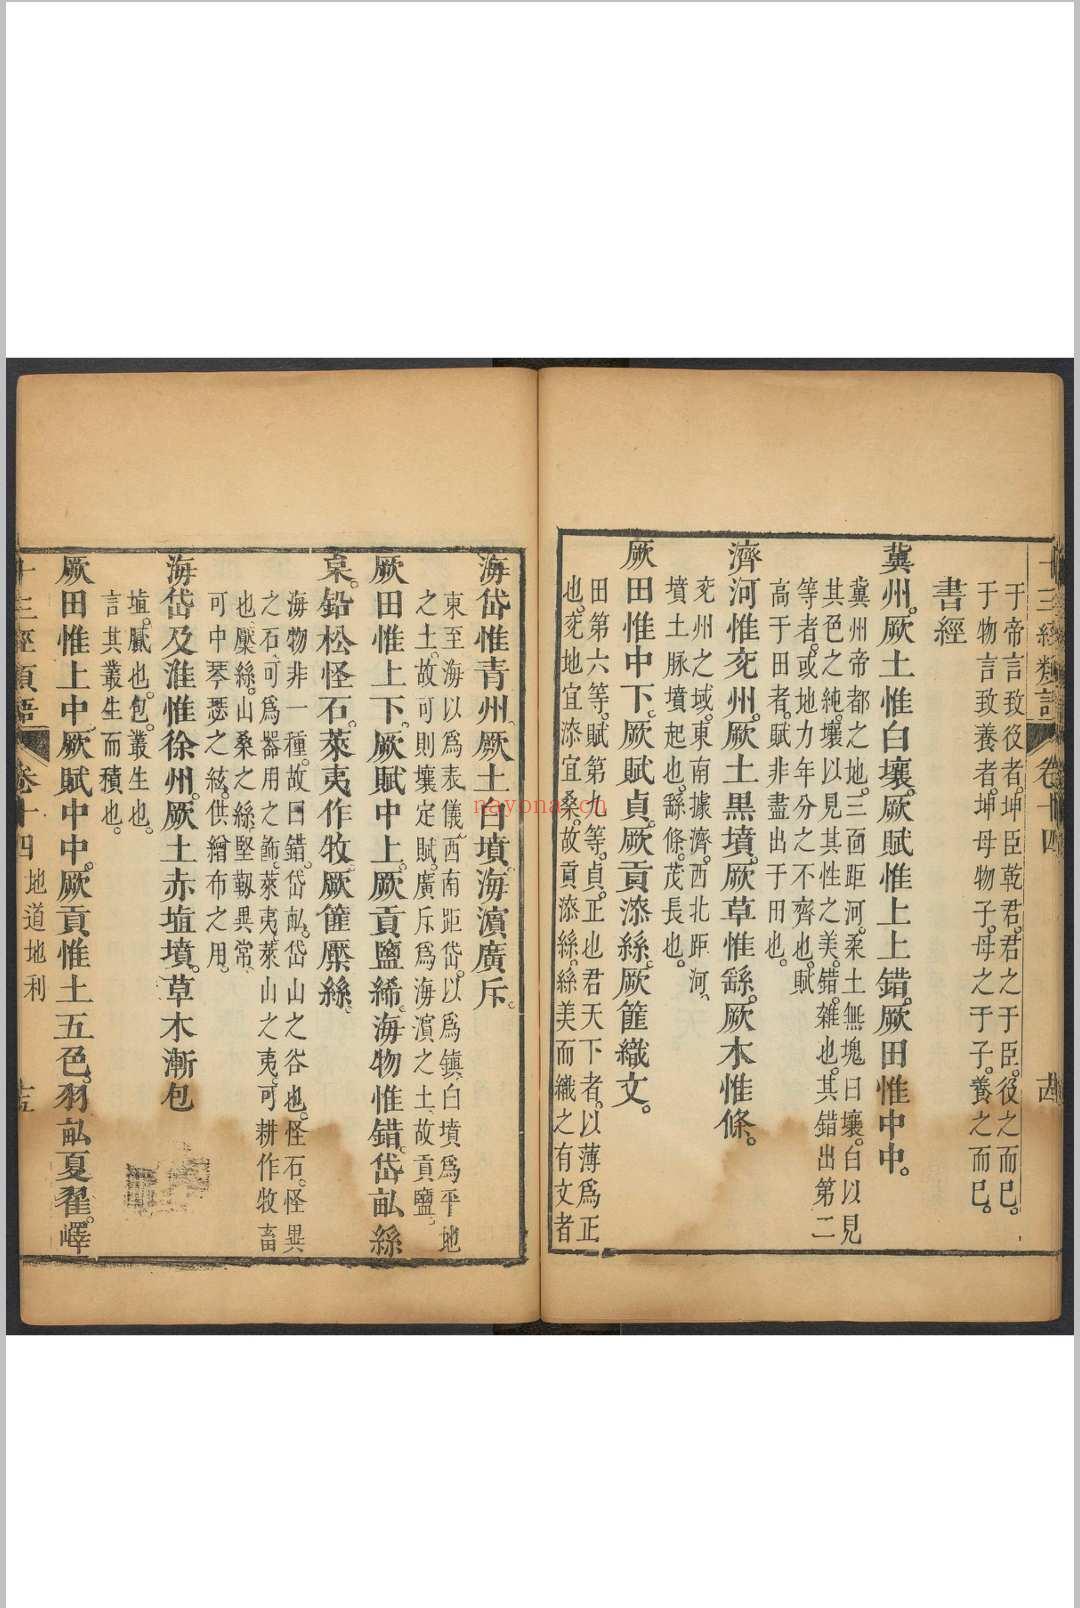 十三經類語 卷十四 十四
于帝言致役者。坤臣乾君。君之于臣。役之而已。
于物言致養者。坤母物子。母之于子。養之而已。
書經
冀州。厥土惟白壤。厥賦惟上上錯。厥田惟中中。
冀州帝都之地。三面距河。柔土無塊曰壤。白以見
其色之純。壤以見其性之美。錯。雜也。其錯出第二
等者。或地力年分之不齊也。賦
高于田者。賦非盡出于田也。
濟河惟兖州。厥土黑墳。厥草惟繇。厥木惟條。
兖州之域。東南據濟。西北距河。
墳土脉墳起也。繇條。茂長也。
厥田惟中下。厥賦貞。厥貢漆絲。厥篚織文。
田第六等。賦第九等。貞。正也君天下者。以薄爲正
也。兖地宜漆宜桑。故貢漆絲。絲美而織之有文者
海岱惟青州。厥土白墳。海濵廣斥。
東至海以爲表儀。西南距岱。以爲鎮。白墳爲平地
之土。故可則壤定賦。廣斥爲海濵之土。故貢鹽。
厥田惟上下。厥賦中上。厥貢鹽絺。海物惟錯。岱畎絲
枲。鉛松怪石。萊夷作牧。厥篚檿絲。
海物非一種。故曰錯。岱畎。岱山之谷也。怪石。怪異
之石。可爲器用之飾。萊夷。萊山之夷。可耕作牧畜
也。檿絲。山桑之絲。堅韌異常。
可中琴瑟之絃。供繒布之用。
海岱及淮惟徐州。厥土赤埴墳。草木漸包
埴。膩也。包。叢生也。
言其叢生而積也。
厥田惟上中。厥賦中中。厥貢惟土五色。羽畎夏翟。嶧
十三經類語 卷十四 地道地利 十五
nayona.cn